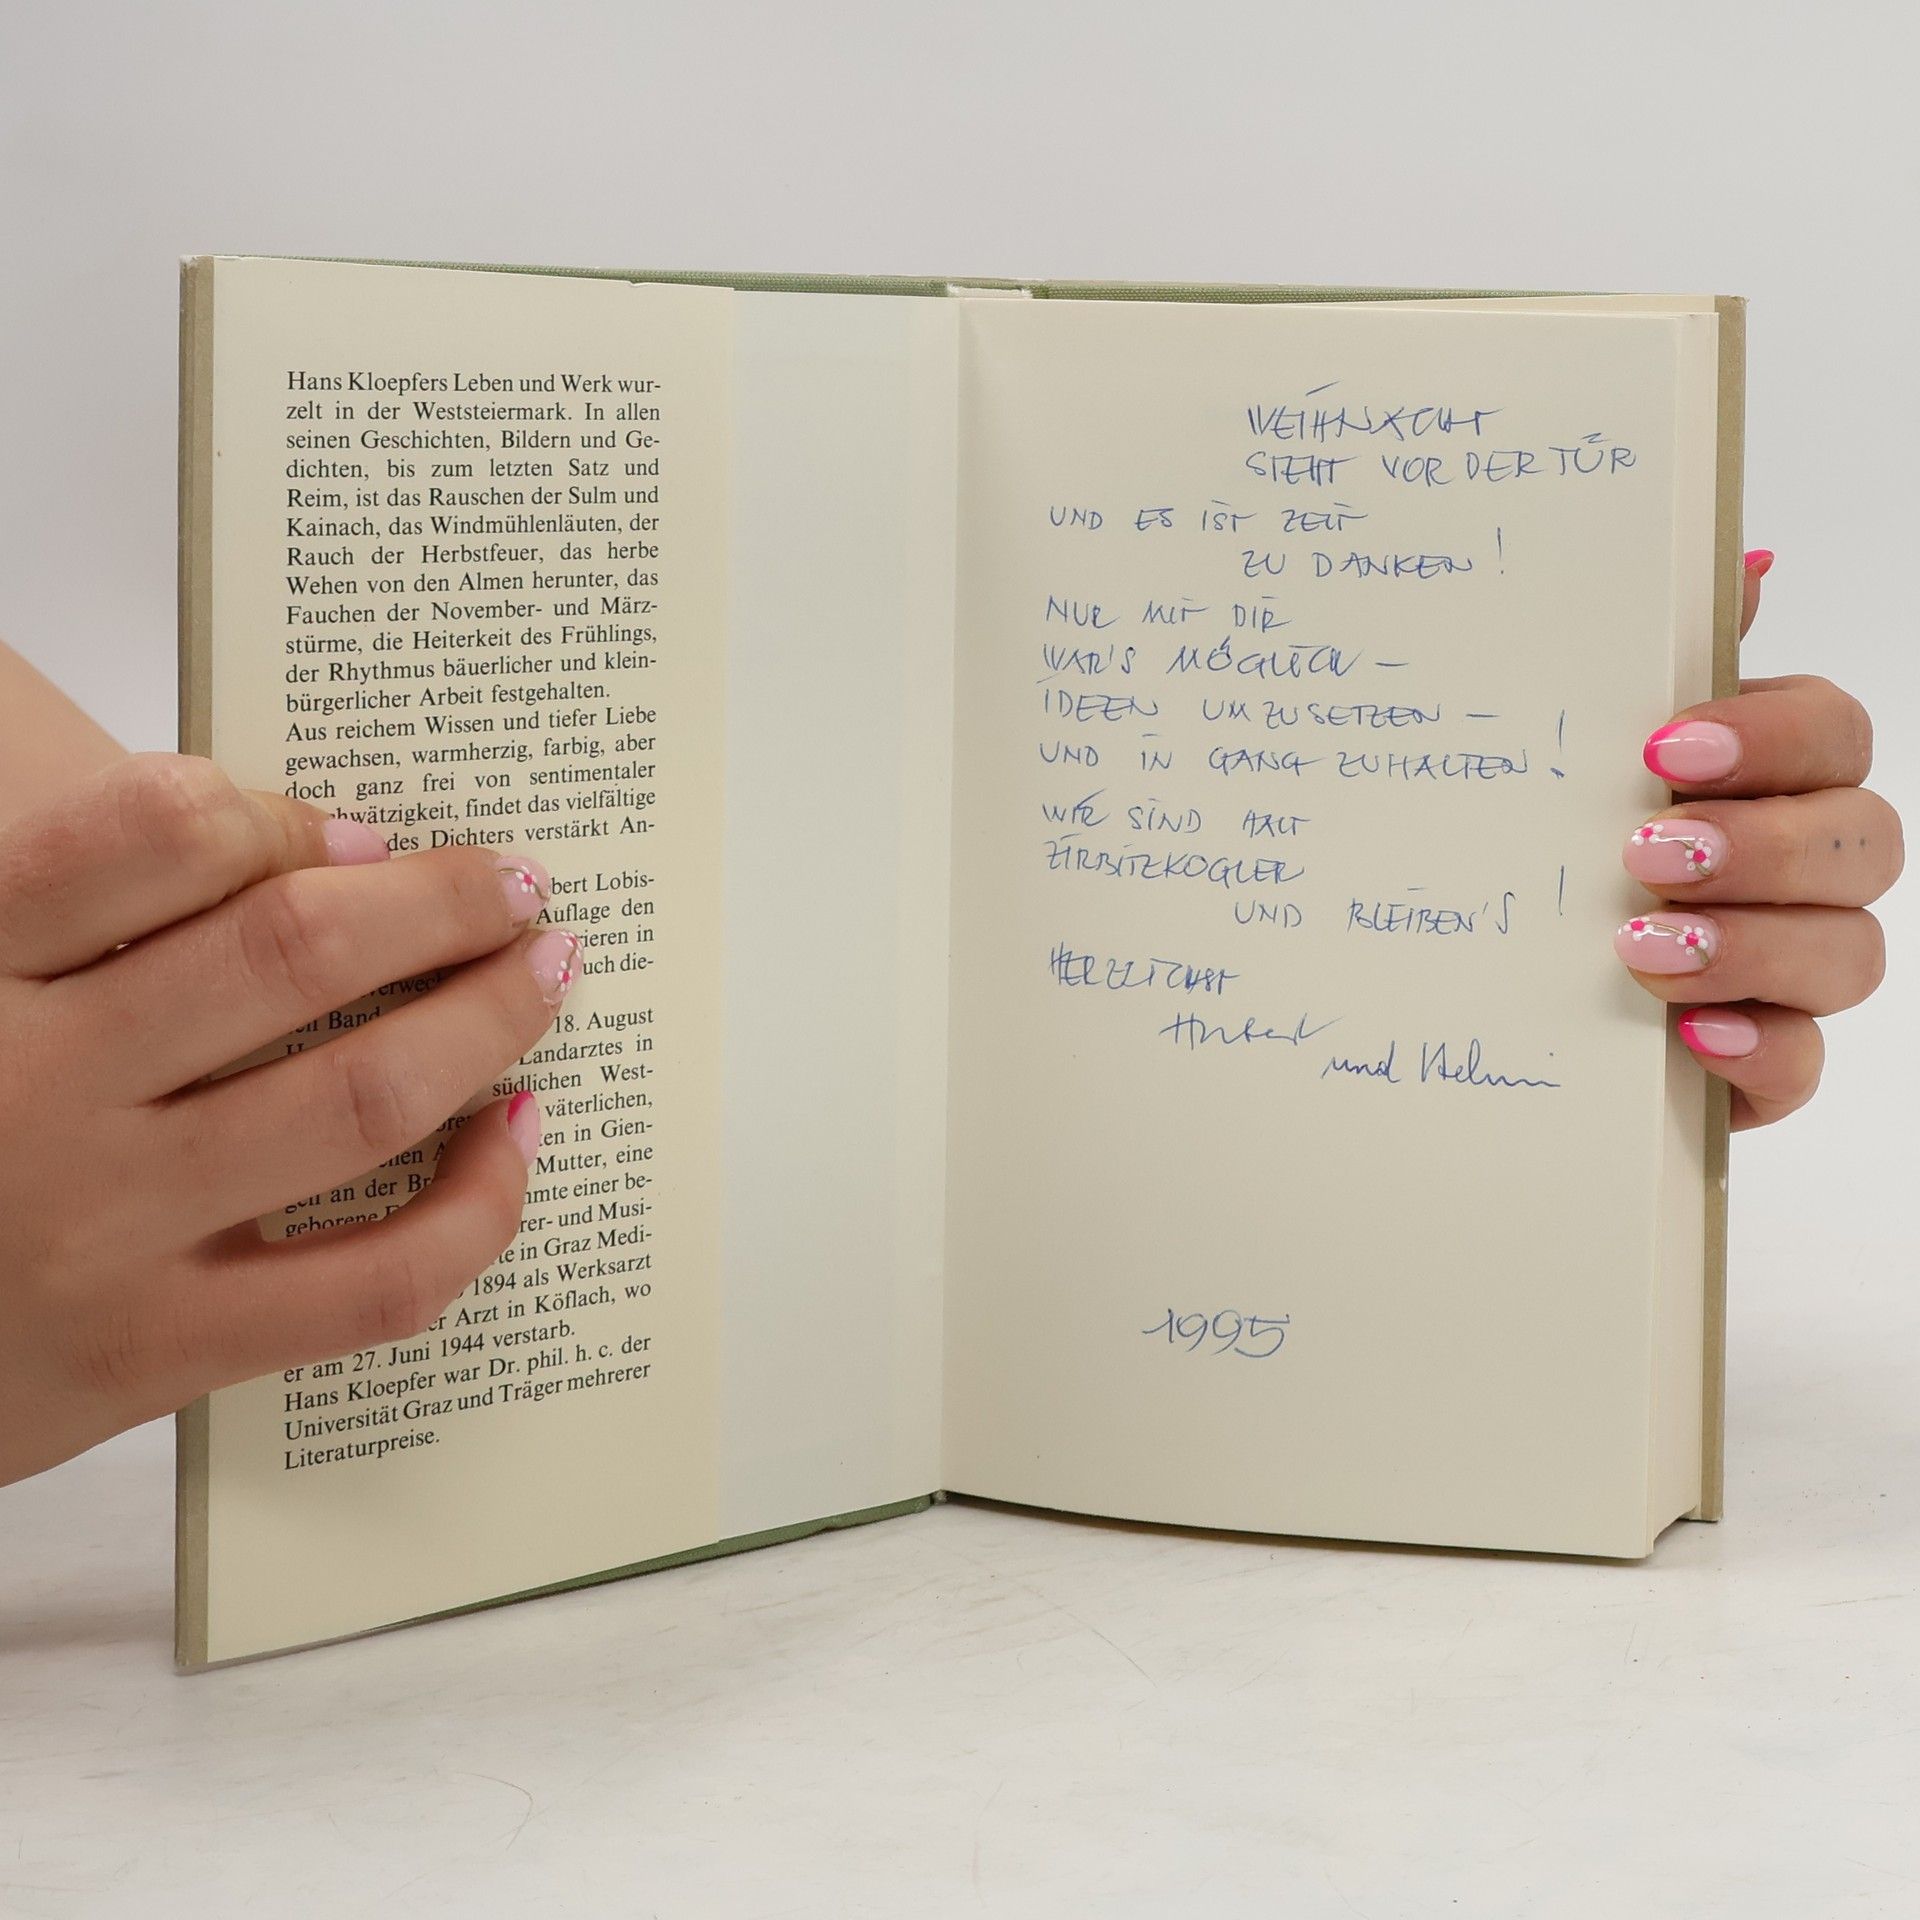 Hans Kloepfers Leben und Werk wur-
zelt in der Weststeiermark. In allen
seinen Geschichten, Bildern und Ge-
dichten, bis zum letzten Satz und
Reim, ist das Rauschen der Sulm und
Kainach, das Windmühlenläuten, der
Rauch der Herbstfeuer, das herbe
Wehen von den Almen herunter, das
Fauchen der November- und März-
stürme, die Heiterkeit des Frühlings,
der Rhythmus bäuerlicher und klein-
bürgerlicher Arbeit festgehalten.
Aus reichem Wissen und tiefer Liebe
gewachsen, warmherzig, farbig, aber
doch ganz frei von sentimentaler
hwätzigkeit, findet das vielfältige
des Dichters verstärkt An-
bert Lobis-
Auflage den
ieren in
uch die-
Band
18. August
Landarztes in
südlichen West-
väterlichen,
ten in Gien-
Mutter, eine
gen an der Br mmte einer be-
geborene rer- und Musi-
te in Graz Medi-
1894 als Werksarzt
er Arzt in Köflach, wo
er am 27. Juni 1944 verstarb.
Hans Kloepfer war Dr. phil. h. c. der
Universität Graz und Träger mehrerer
Literaturpreise.
WEIHNACHT
STEHT VOR DER TÜR
UND ES IST ZEIT
ZU DANKEN!
NUR MIT DIR
WAR'S MÖGLICH –
IDEEN UMZUSETZEN –
UND IN GANG ZUHALTEN!
WIR SIND HALT
ZIRBITZKOGLER
UND BLEIBEN'S!
HERZLICHST
und Helmi
1995